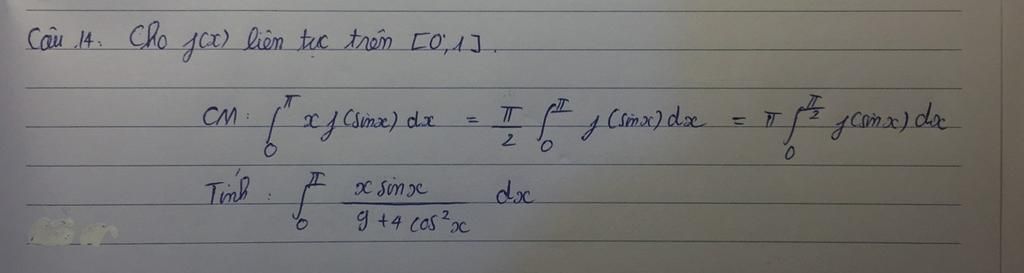 Câu 14. Cho f(x) liên tục trên [0;1].
CM: ∫₀^π x f(sinx) dx = π/2 ∫₀^π f(sinx) dx = π ∫₀^(π/2) f(sinx) dx
Tính: ∫₀^π (x sinx)/(9 + 4 cos²x) dx